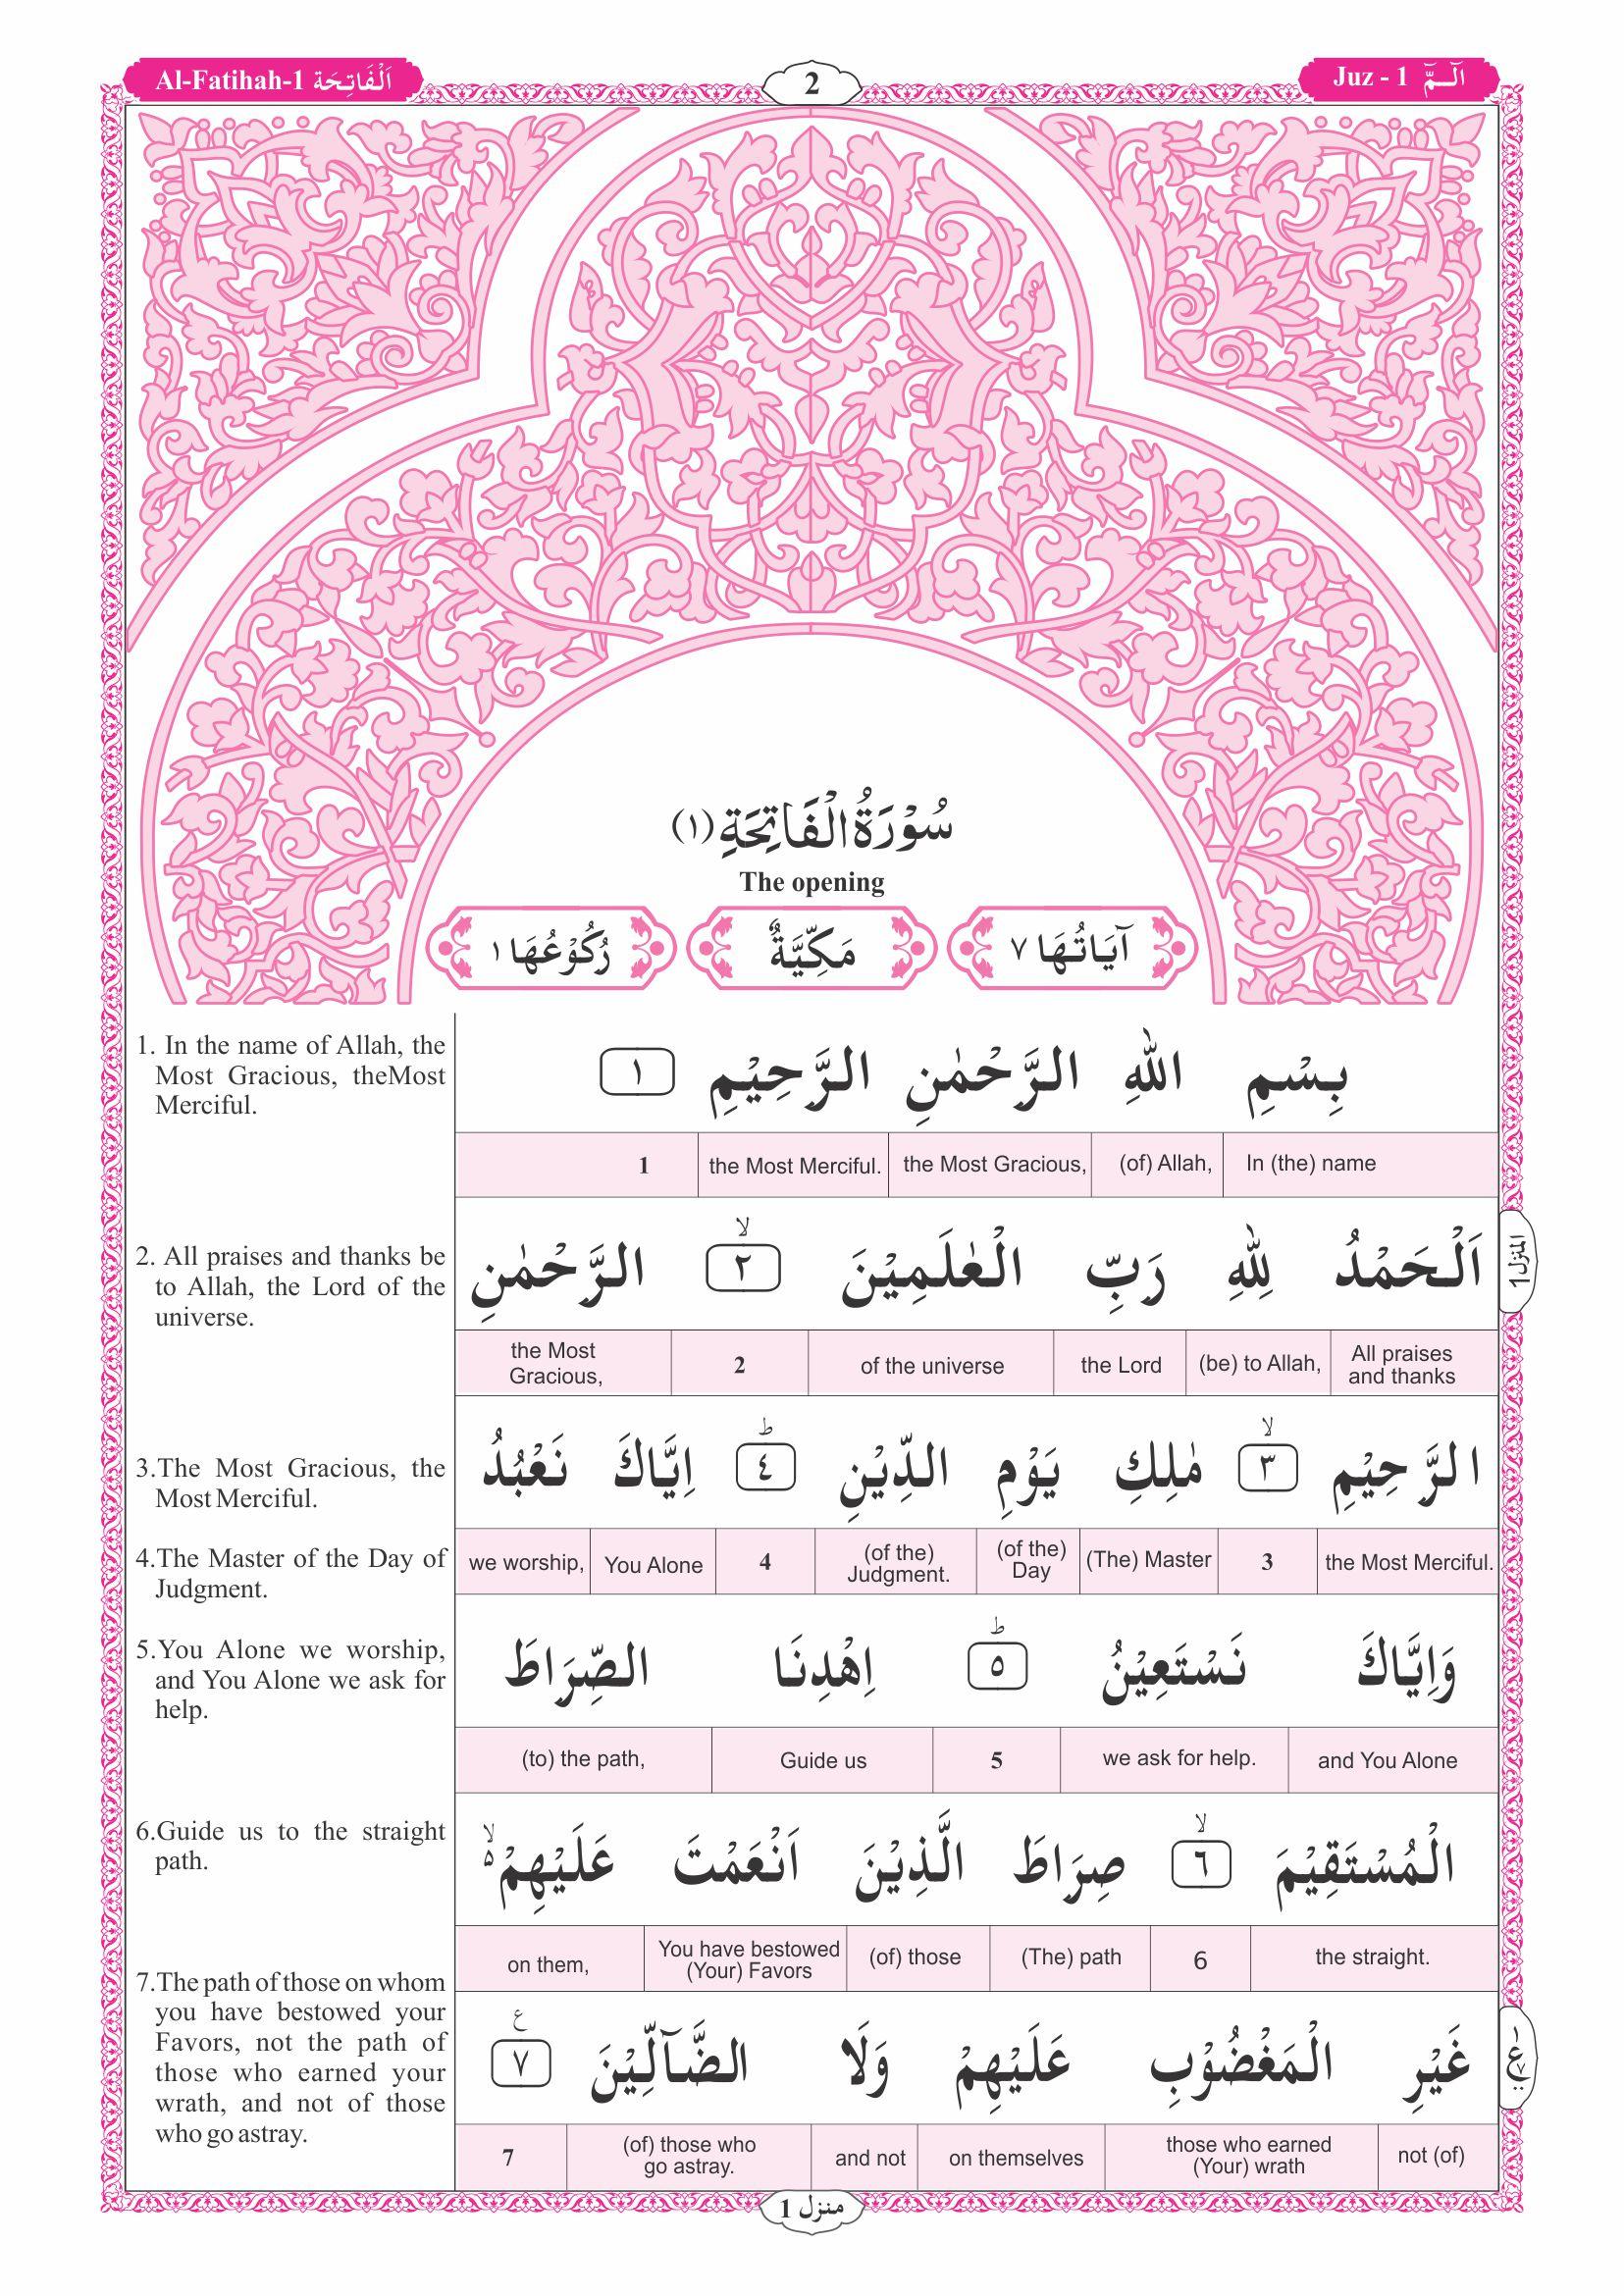 Al-Fatihah-1 اَلْفَاتِحَة
2
Juz - 1 الٓـمّٓ
سُوْرَةُ الْفَاتِحَةِ (١)
The opening
آيَاتُهَا ٧
مَكِّيَّةٌ
رُكُوْعُهَا ١
1. In the name of Allah, the
Most Gracious, theMost
Merciful.
بِسْمِ اللهِ الرَّحْمٰنِ الرَّحِيْمِ ١
In (the) name | (of) Allah, | the Most Gracious, | the Most Merciful. | 1
2. All praises and thanks be
to Allah, the Lord of the
universe.
اَلْحَمْدُ لِلّٰهِ رَبِّ الْعٰلَمِيْنَ ٢ ۙ الرَّحْمٰنِ
All praises and thanks | (be) to Allah, | the Lord | of the universe | 2 | the Most Gracious,
المنزل 1
3.The Most Gracious, the
Most Merciful.
4.The Master of the Day of
Judgment.
الرَّحِيْمِ ٣ ۙ مٰلِكِ يَوْمِ الدِّيْنِ ٤ ؕ اِيَّاكَ نَعْبُدُ
the Most Merciful. | 3 | (The) Master | (of the) Day | (of the) Judgment. | 4 | You Alone | we worship,
5.You Alone we worship,
and You Alone we ask for
help.
وَاِيَّاكَ نَسْتَعِيْنُ ٥ ؕ اِهْدِنَا الصِّرَاطَ
and You Alone | we ask for help. | 5 | Guide us | (to) the path,
6.Guide us to the straight
path.
الْمُسْتَقِيْمَ ٦ ۙ صِرَاطَ الَّذِيْنَ اَنْعَمْتَ عَلَيْهِمْ ۙ۵
the straight. | 6 | (The) path | (of) those | You have bestowed (Your) Favors | on them,
7.The path of those on whom
you have bestowed your
Favors, not the path of
those who earned your
wrath, and not of those
who go astray.
غَيْرِ الْمَغْضُوْبِ عَلَيْهِمْ وَلَا الضَّآلِّيْنَ ٧ ع
not (of) | those who earned (Your) wrath | on themselves | and not | (of) those who go astray. | 7
منزل 1